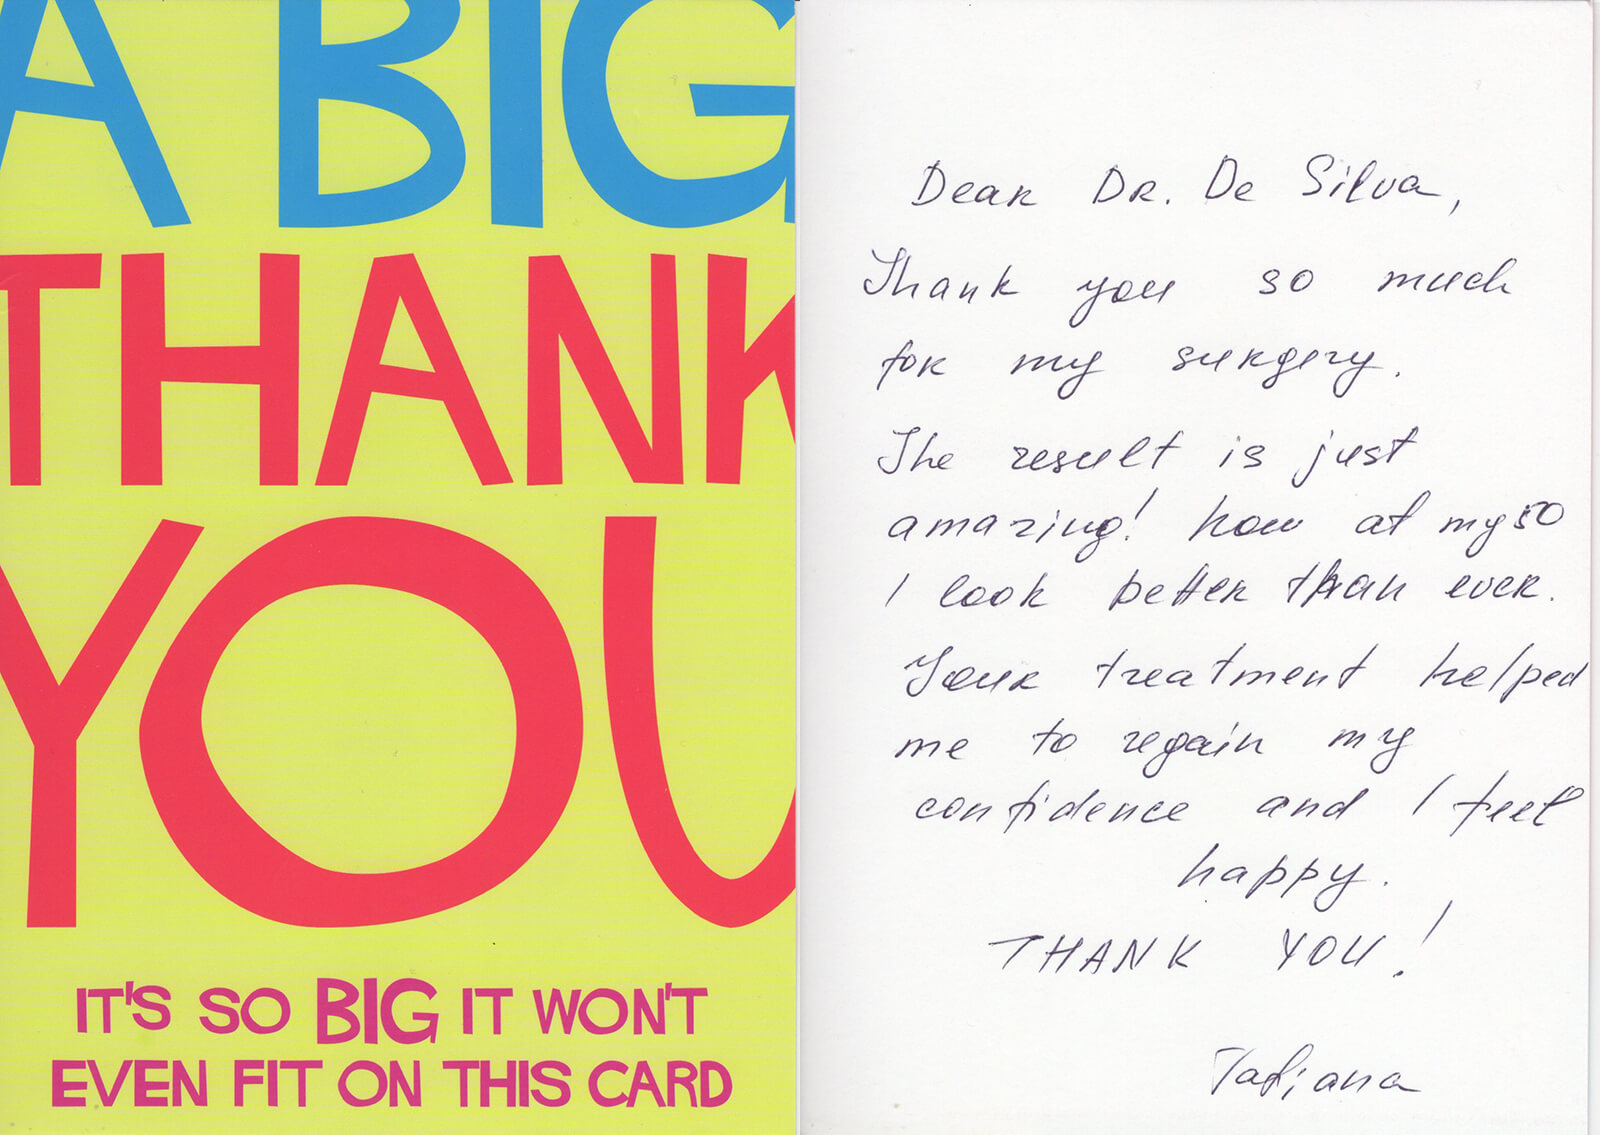 A BIG
THANK
YOU
IT'S SO BIG IT WON'T
EVEN FIT ON THIS CARD
Dear Dr. De Silva,
Thank you so much
for my surgery.
The result is just
amazing! how at my 50
I look better than ever.
Your treatment helped
me to regain my
confidence and I feel
happy.
THANK YOU!
Tatjana